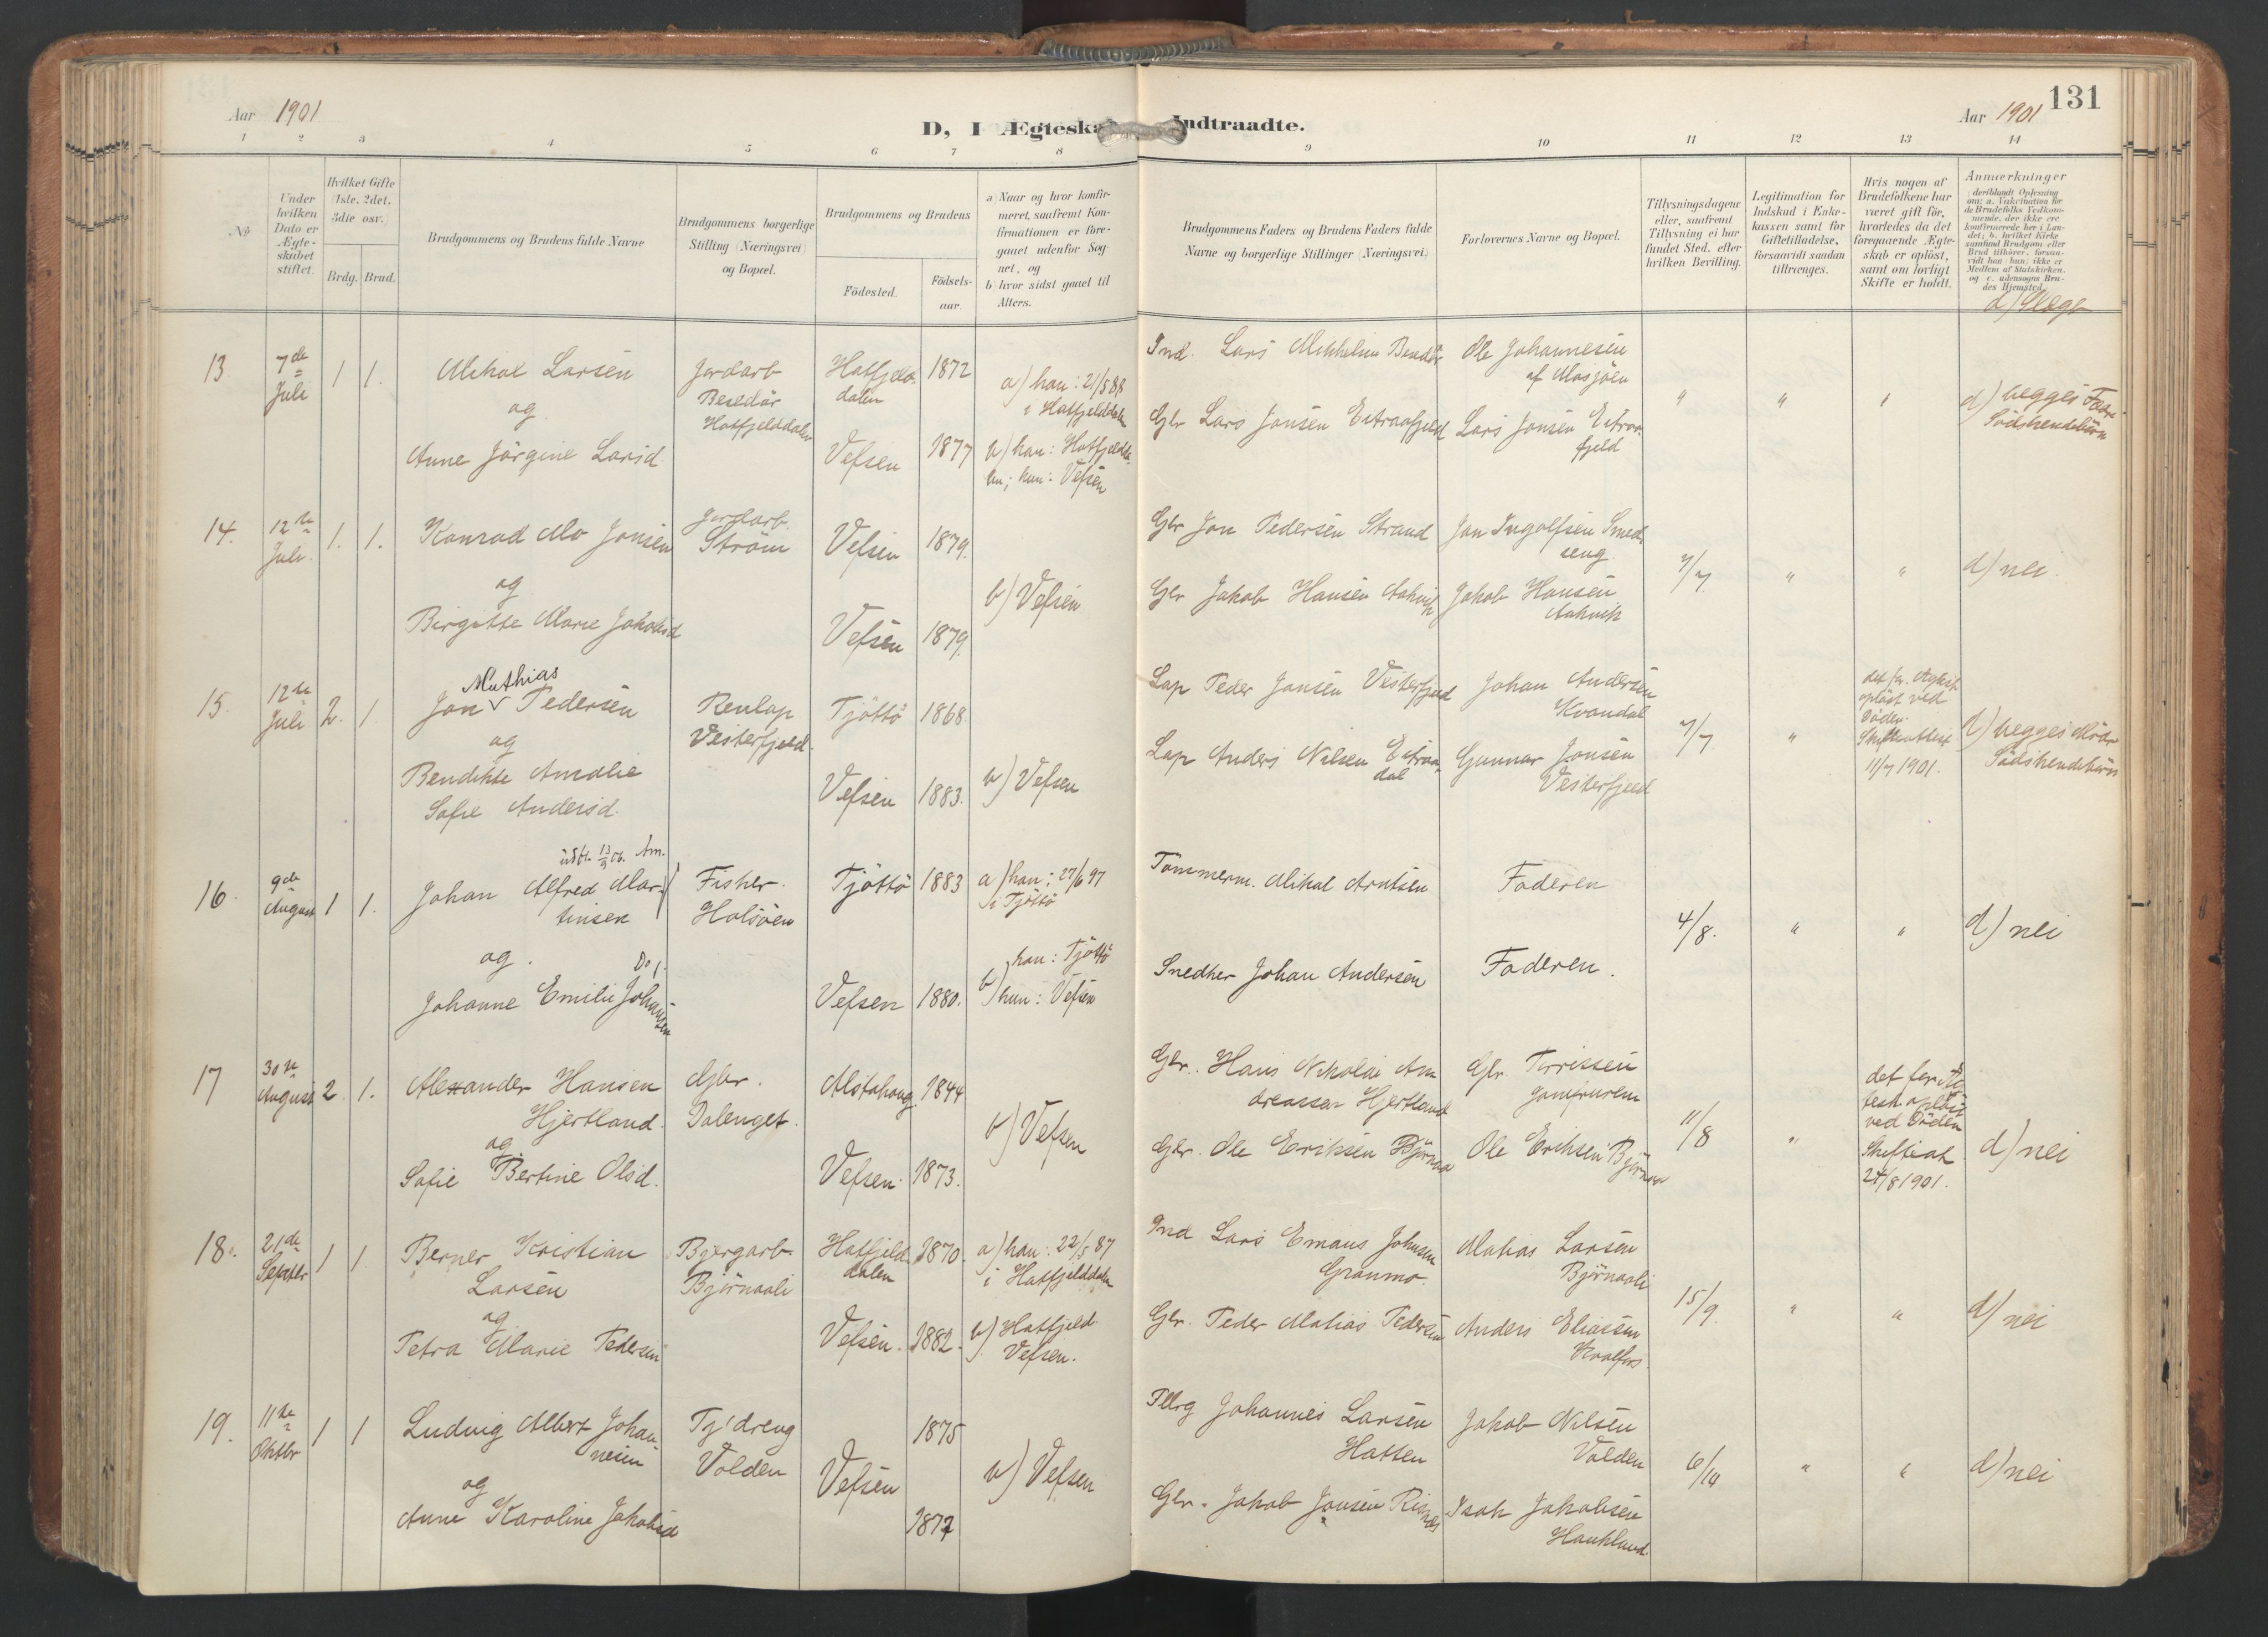 Aar 1901
D, I Ægteska
Indtraadte.
Aar 1901
131
1 2 3 4 5 6 7 8 9 10 11 12 13 14
No
Under hvilken Dato er Ægteskabet stiftet.
Hvilket Gifte (1ste. 2det. 3die osv.)
Brdg. Brud.
Brudgommens og Brudens fulde Navne
Brudgommens borgerlige Stilling (Næringsvei) og Bopæl.
Brudgommens og Brudens
Födested.
Födsels-aar.
a) Naar og hvor konfirmeret, saafremt Konfirmationen er foregaaet udenfor Sognet, og
b) hvor sidst gaaet til Alters.
Brudgommens Faders og Brudens Faders fulde Navne og borgerlige Stillinger (Næringsvei)
Forlovernes Navne og Bopæl.
Tillysningsdagene eller, saafremt Tillysning ei har fundet Sted, efter hvilken Bevilling.
Legitimation for Indskud i Enkekassen samt for Giftetilladelse, forsaavidt saadan tiltrænges.
Hvis nogen af Brudefolkene har været gift för, hvorledes da det foregaaende Ægteskab er oplöst, samt om lovligt Skifte er holdt.
Anmærkninger
(deriblandt Oplysning om: a. Vakcination for de Brudefolks Vedkommende, der ikke ere konfirmerede her i Landet; b. hvilket Kirkesamfund Brudgom eller Brud tilhörer, forsaavidt han (hun) ikke er Medlem af Statskirken, og c. udensogns Brudes Hjemsted.
d) Slægt
13
7de Juli
1 1.
Mikal Larsen
og
Anne Jörgine Larsd
Jordarb
Hatfjelddalen
Hatfjelddalen 1872
Vefsen 1877
a) han: 21/5 88
i Hatfjelddalen
b) han: Hatfjeldda-
len; hun: Vefsen
Ind. Lars Mikkelsen
Glr Lars Jonsen
Ole Johannesen
af Mosjöen
Lars Jonsen
fjeld
" " "
d) begges Fædre
Södskendebörn
14.
12te Juli.
1. 1.
Konrad Mo Jonsen
og
Birgitte Marie Jakobsd
Jordarb.
Ström
Vefsen 1879.
Vefsen 1879.
b) Vefsen
Glr Jon Pedersen Strand
Glr Jakob Hansen Aakvik
Jon Ingolfsen Smed-
seng
Jakob Hansen
Aakvik
7/7
" "
d) nei.
15.
12te Juli
2. 1
Mathias
Jon Pedersen
og
Bendikte Amalie
Sofie Andersd.
Renlap
Vesterfjeld.
Tjöttö 1868.
Vefsen 1883.
b) Vefsen
Lap Peder Jonsen Vesterfjeld
Lap Anders Nilsen
dal
Johan Andersen
Kvandal
Gunnar Jonsen
Vesterfjeld
7/7
"
det før. Ægtesk
oplöst ved
Döden.
Skifteattest
11/7 1901.
d) begges Mödre
Södskendebörn
16.
9de August
1 1.
udst. 13/9 06. Am.
Johan Alfred Mar-
tinsen
og.
Do
Johanne Emilie Johansen
Fisker.
Halsöen
Tjöttö 1883
Vefsen 1880.
a) han: 27/6 97
i Tjöttö
b) han: Tjöttö
hun: Vefsen
Tömmerm. Mikal Arntsen
Snedker Johan Andersen
Faderen
Faderen.
4/8.
" "
d) nei
17
30te August
2. 1.
Alexander Hansen
Hjertland.
og
Sofie Bertine Olsd.
Gbr.
Dalenget.
Alstahoug. 1844
Vefsen. 1873.
b) Vefsen
Gbr. Hans Nikolai An
dreassen Hjertland
Gbr. Ole Eriksen Björnaa
Gbr. Torrissen
Jomfruren
Ole Eriksen Björnaa
11/8
"
det før. Æg
tesk. oplöst
ved Döden
Skifteat
24/8 1901.
d) nei
18.
21de Septbr
1 1
Berner Kristian
Larsen
og
Petra Marie Pedersen
Bjergarb.
Björnaali
Hatfjeld
dalen 1870.
Vefsen. 1882.
a) han: 22/5 87
i Hatfjelddalen
b) Hatfjeld.
Vefsen.
Ind Lars Emaus Johnsen
Granmo.
Glr. Peder Matias Pedersen
Matias Larsen
Björnaali
Anders Eliassen
Kvalfors.
15/9.
" "
d) nei
19.
11te Oktbr
1 1
Ludvig Albert Johan-
nesen
og
Anne Karoline Jakobsd
Tj'dreng
Volden
Vefsen
1875
1877
b) Vefsen
Johannes Larsen
Hatten
Glr. Jakob Jonsen
Jakob Nilsen
Volden
Isak Jakobsen
Haukland.
6/10
" "
d) nei